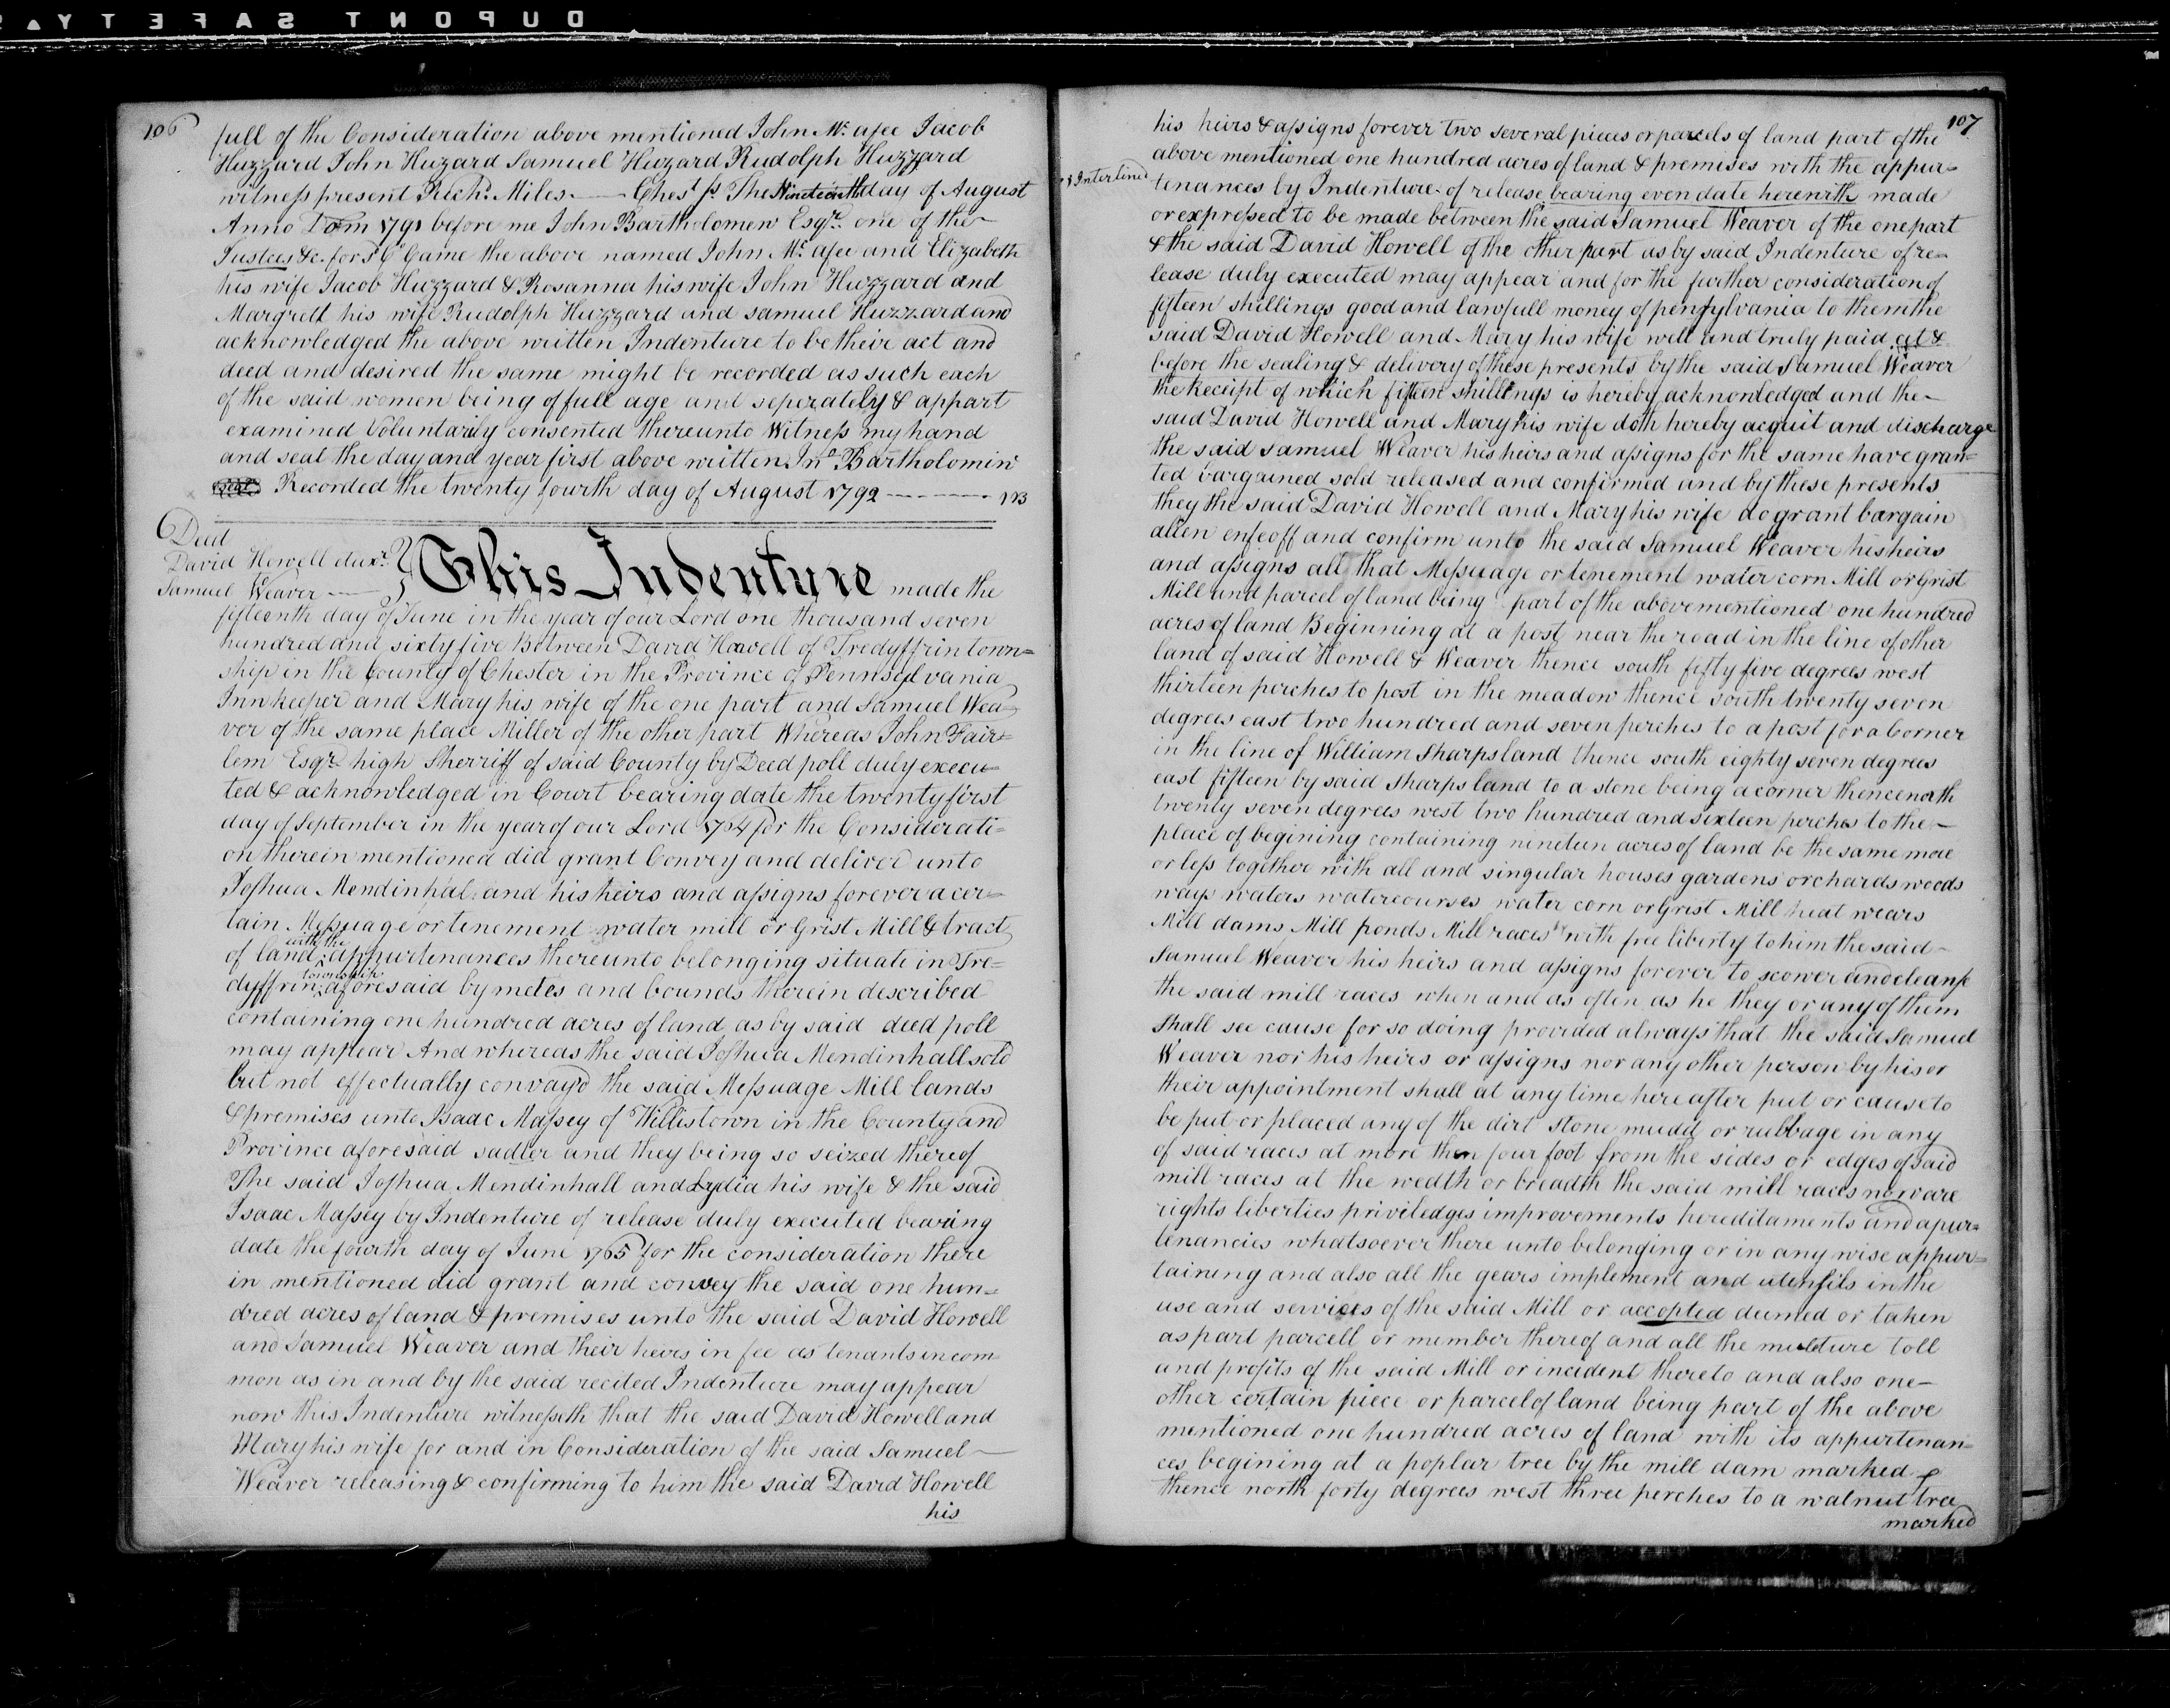 DUPONT SAFETY
106
full of the Consideration above mentioned John Mc. afee Jacob
Huzzard John Huzard Samuel Huzzard Rudolph Huzzard
witness present Richd. Miles. — Chest ss. The Nineteenth day of August
Anno Dom 1791 before me John Bartholomew Esqr. one of the
Justces &c. for sd C Came the above named John Mc. afee and Elizabeth
his wife Jacob Huzzard & Rosanna his wife John Huzzard and
Margrett his wife Rudolph Huzzard and Samuel Huzzard and
acknowledged the above written Indenture to be their act and
deed and desired the same might be recorded as such each
of the said women being of full age and seperately & appart
examined Voluntarily consented thereunto Witness my hand
and seal the day and year first above written Jno. Bartholomew
Recorded the twenty fourth day of August 1792 — 123
Deed
David Howell & uxr.
Samuel Weaver —
This Indenture made the
fifteenth day of June in the year of our Lord one thousand seven
hundred and sixty five Between David Howell of Tredyffrin town=
ship in the County of Chester in the Province of Pennsylvania
Innkeeper and Mary his wife of the one part and Samuel Wea=
ver of the same place Miller of the other part Whereas John Fair=
lem Esqr. high Sherriff of said County by Deed poll duly execu=
ted & acknowledged in Court bearing date the twenty first
day of September in the year of our Lord 1764 for the Considerati=
on therein mentioned did grant Convey and deliver unto
Joshua Mendinhal. and his heirs and assigns forever a cer=
tain Messuage or tenement water mill or Grist Mill & tract
of land with the appurtenances thereunto belonging situate in Tre=
dyffrin township aforesaid by metes and bounds therein described
containing one hundred acres of land as by said deed poll
may appear And whereas the said Joshua Mendinhall sold
but not effectually convayd the said Messuage Mill lands
& premises unto Isaac Massey of Willistown in the County and
Province aforesaid sadler and they being so seized thereof
The said Joshua Mendinhall and Lydia his wife & the said
Isaac Massey by Indenture of release duly executed bearing
date the fourth day of June 1765 for the consideration there
in mentioned did grant and convey the said one hun=
dred acres of land & premises unto the said David Howell
and Samuel Weaver and their heirs in fee as tenants in com
mon as in and by the said recited Indenture may appear
now this Indenture witnesseth that the said David Howell and
Mary his wife for and in Consideration of the said Samuel
Weaver releasing & confirming to him the said David Howell
his
107
his heirs & assigns forever two several pieces or parcels of land part of the
above mentioned one hundred acres of land & premises with the appur=
Interlined
tenances by Indenture of release bearing even date herewith made
or expressed to be made between the said Samuel Weaver of the one part
& the said David Howell of the other part as by said Indenture of re=
lease duly executed may appear and for the further consideration of
fifteen shillings good and lawfull money of pensylvania to them the
said David Howell and Mary his wife well and truly paid at &
before the sealing & delivery of these presents by the said Samuel Weaver
the Receipt of which fifteen shillings is hereby acknowledged and the
said David Howell and Mary his wife doth hereby acquit and discharge
the said Samuel Weaver his heirs and assigns for the same have gran=
ted bargained sold released and confirmed and by these presents
they the said David Howell and Mary his wife do grant bargain
alien enfeoff and confirm unto the said Samuel Weaver his heirs
and assigns all that Messuage or tenement water corn Mill or Grist
Mill and parcel of land being part of the abovementioned one hundred
acres of land Beginning at a post near the road in the line of other
land of said Howell & Weaver thence south fifty five degrees west
thirteen perches to post in the meadow thence south twenty seven
degrees east two hundred and seven perches to a post for a Corner
in the line of William Sharps land thence south eighty seven degrees
east fifteen by said Sharps land to a stone being a corner thence north
twenty seven degrees west two hundred and sixteen perches to the
place of begining containing nineteen acres of land be the same more
or less together with all and singular houses gardens orchards woods
ways waters watercourses water corn or Grist Mill heat wears
Mill dams Mill ponds Mill races with free liberty to him the said
Samuel Weaver his heirs and assigns forever to scower and cleanse
the said mill races when and as often as he they or any of them
shall see cause for so doing provided always that the said Samuel
Weaver nor his heirs or assigns nor any other person by his or
their appointment shall at any time hereafter put or cause to
be put or placed any of the dirt stone mudd or rubbage in any
of said races at more then four foot from the sides or edges of said
mill races at the wedth or breadth the said mill races now are
rights liberties priviledges improvements hereditaments and apur=
tenancies whatsoever there unto belonging or in any wise appur=
taining and also all the gears implement and utensils in the
use and services of the said Mill or accopted deemed or taken
as part parcell or member thereof and all the multure toll
and profits of the said Mill or incident thereto and also one
other certain piece or parcel of land being part of the above
mentioned one hundred acres of land with its appurtenan=
ces begining at a poplar tree by the mill dam marked
thence north forty degrees west three perches to a walnut tree
marked